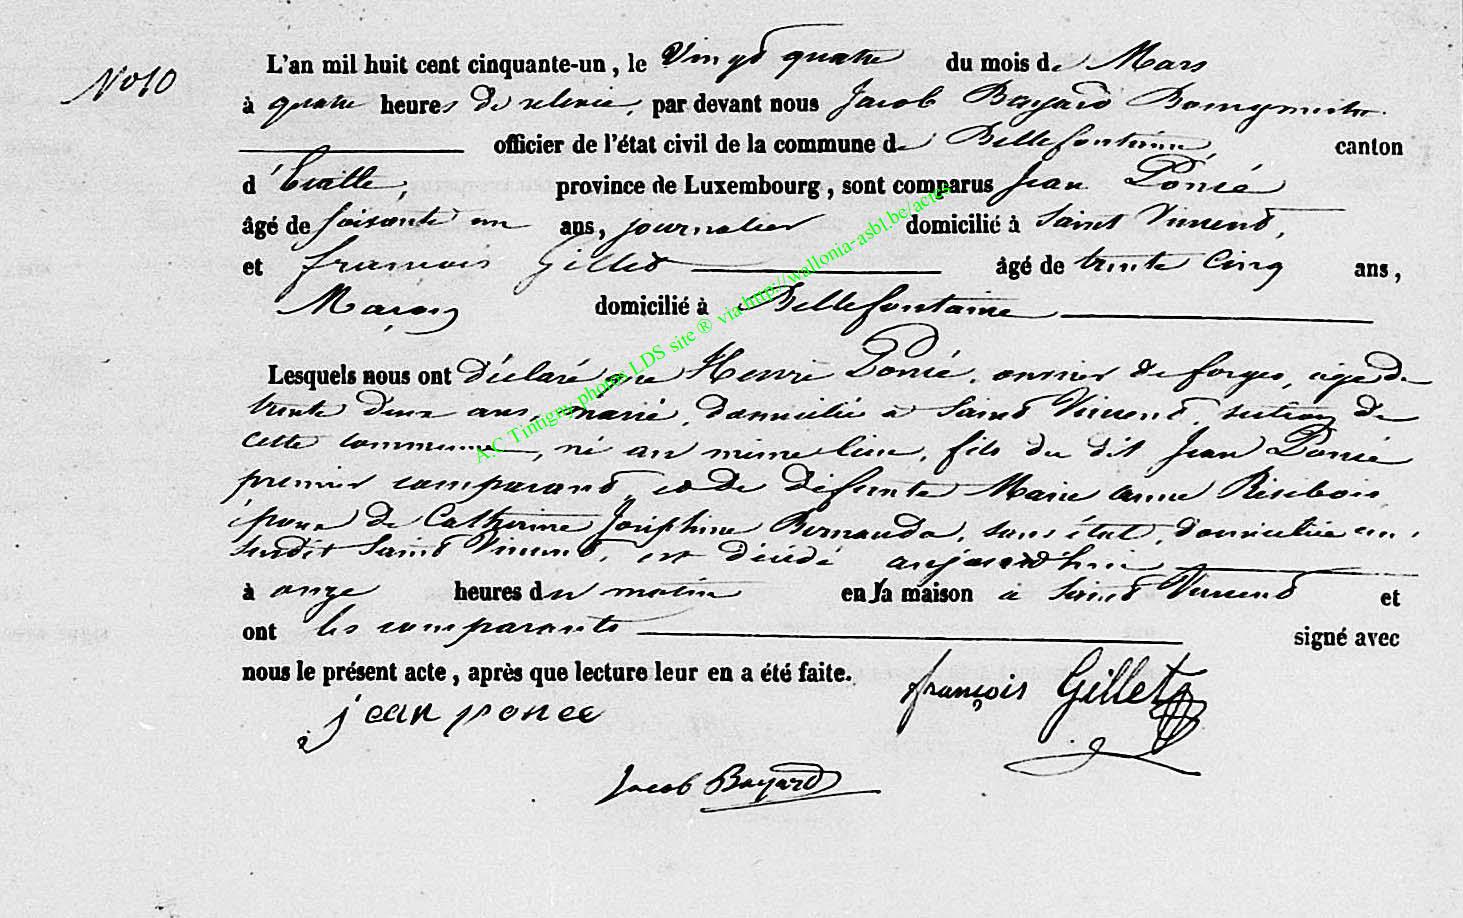 N° 10
L'an mil huit cent cinquante-un, le Vingt quatre du mois de Mars
à quatre heures de relevée, par devant nous Jacob Bayard Bourgmestre
officier de l'état civil de la commune de Bellefontaine, canton
d'Etalle, province de Luxembourg, sont comparus Jean Poncé
âgé de soixante un ans, journalier domicilié à Saint Vincent,
et francois Gillet âgé de trente Cinq ans,
Maçon domicilié à Bellefontaine
Lesquels nous ont déclaré que Henri Poncé, ouvrier de forges, age de
trente deux ans, marié, domicilié à Saint Vincent, section de
cette commune, né au même lieu, fils du dit Jean Poncé
premier comparant et de défunte Marie anne Risebois
époux de Catherine Joséphine Bernarda, sans état, domiciliée au
susdit Saint Vincent, est décédé aujourdhui
à onze heures du matin en sa maison a Saint Vincent et
ont les comparants signé avec
nous le présent acte, après que lecture leur en a été faite.
jean ponce françois Gillet
Jacob Bayard
A.C Tintigny photos LDS site ® via http://wallonia-asbl.be/actes